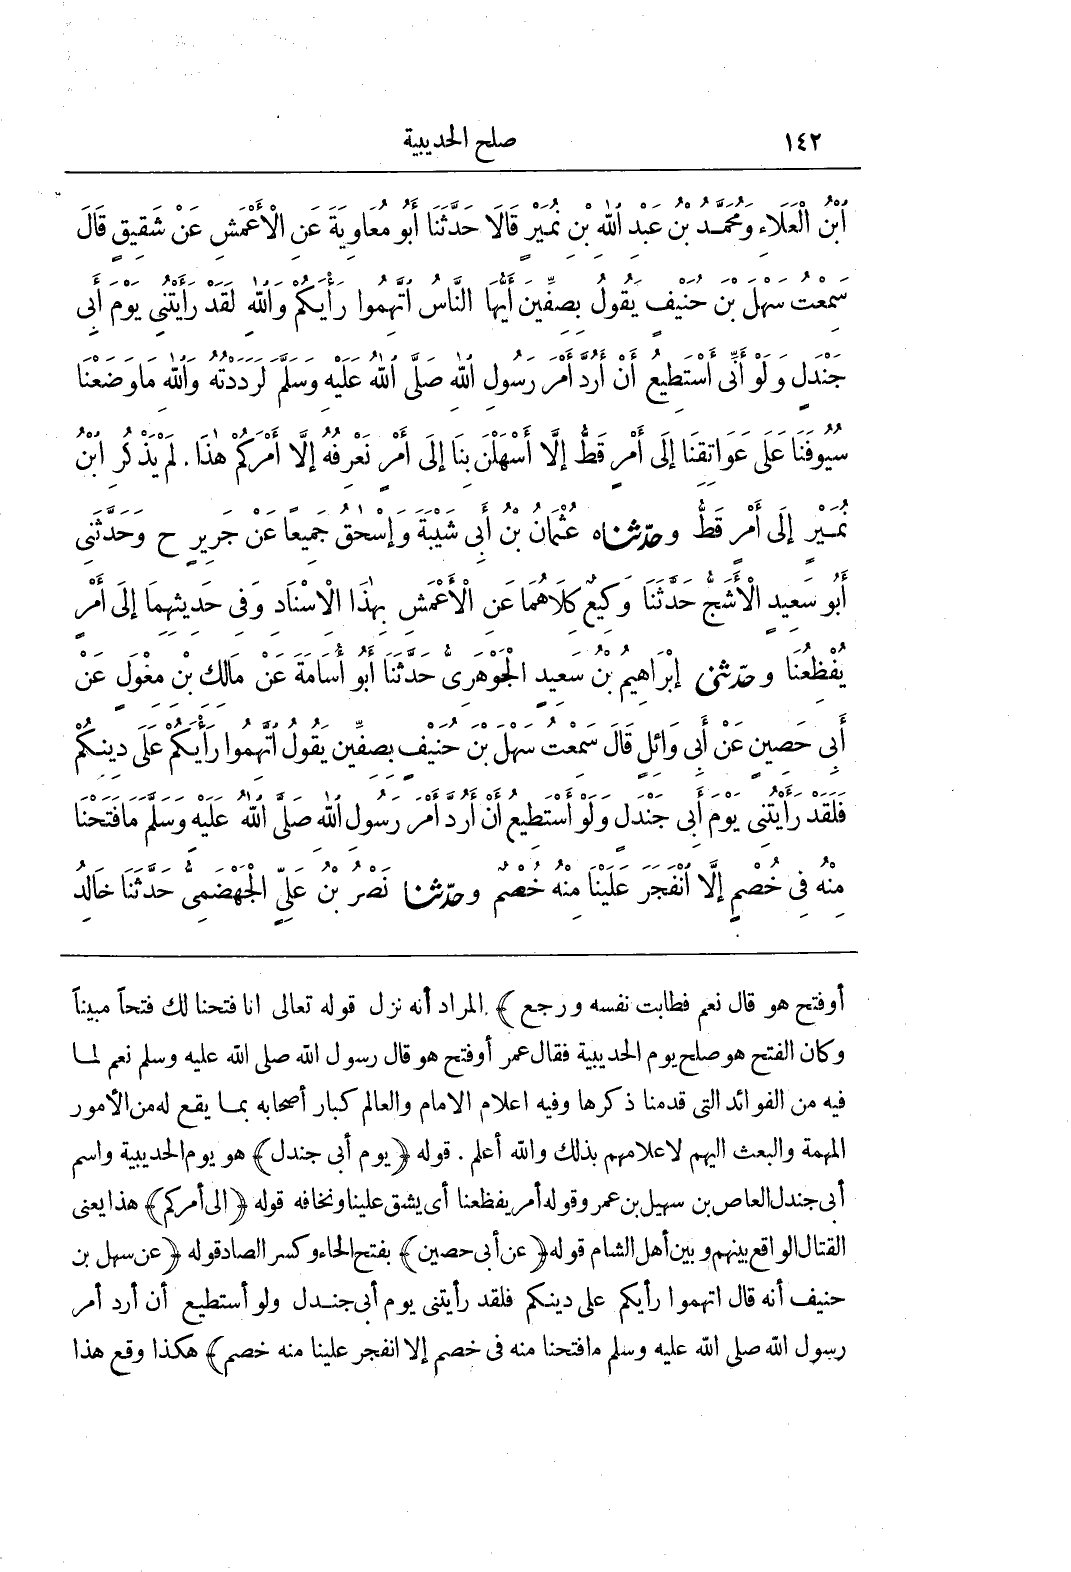 ١٤٢
صلح الحديبية
ابْنُ الْعَلَاءِ وَمُحَمَّدُ بْنُ عَبْدِ اللهِ بْنِ نُمَيْرٍ قَالَا حَدَّثَنَا أَبُو مُعَاوِيَةَ عَنِ الْأَعْمَشِ عَنْ شَقِيقٍ قَالَ
سَمِعْتُ سَهْلَ بْنَ حُنَيْفٍ يَقُولُ بِصِفِّينَ أَيُّهَا النَّاسُ اتَّهِمُوا رَأْيَكُمْ وَاللهِ لَقَدْ رَأَيْتُنِى يَوْمَ أَبِى
جَنْدَلٍ وَلَوْ أَنِّى أَسْتَطِيعُ أَنْ أَرُدَّ أَمْرَ رَسُولِ اللهِ صَلَّى اللهُ عَلَيْهِ وَسَلَّمَ لَرَدَدْتُهُ وَاللهِ مَا وَضَعْنَا
سُيُوفَنَا عَلَى عَوَاتِقِنَا إِلَى أَمْرٍ قَطُّ إِلَّا أَسْهَلْنَ بِنَا إِلَى أَمْرٍ نَعْرِفُهُ إِلَّا أَمْرَكُمْ هٰذَا . لَمْ يَذْكُرِ ابْنُ
نُمَيْرٍ إِلَى أَمْرٍ قَطُّ وحدثناه عُثْمَانُ بْنُ أَبِى شَيْبَةَ وَإِسْحٰقُ جَمِيعاً عَنْ جَرِيرٍ ح وَحَدَّثَنِى
أَبُو سَعِيدٍ الْأَشَجُّ حَدَّثَنَا وَكِيعٌ كِلَاهُمَا عَنِ الْأَعْمَشِ بِهٰذَا الْاِسْنَادِ وَفِى حَدِيثِهِمَا إِلَى أَمْرٍ
يُفْظِعُنَا وحدثنى إِبْرَاهِيمُ بْنُ سَعِيدٍ الْجَوْهَرِىُّ حَدَّثَنَا أَبُو أُسَامَةَ عَنْ مَالِكِ بْنِ مِغْوَلٍ عَنْ
أَبِى حَصِينٍ عَنْ أَبِى وَائِلٍ قَالَ سَمِعْتُ سَهْلَ بْنَ حُنَيْفٍ بِصِفِّينَ يَقُولُ اتَّهِمُوا رَأْيَكُمْ عَلَى دِينِكُمْ
فَلَقَدْ رَأَيْتُنِى يَوْمَ أَبِى جَنْدَلٍ وَلَوْ أَسْتَطِيعُ أَنْ أَرُدَّ أَمْرَ رَسُولِ اللهِ صَلَّى اللهُ عَلَيْهِ وَسَلَّمَ مَا فَتَحْنَا
مِنْهُ فِى خُصْمٍ إِلَّا انْفَجَرَ عَلَيْنَا مِنْهُ خُصْمٌ وحدثنا نَصْرُ بْنُ عَلِىٍّ الْجَهْضَمِىُّ حَدَّثَنَا خَالِدُ
أوفتح هو قال نعم فطابت نفسه ورجع ﴾ المراد أنه نزل قوله تعالى انا فتحنا لك فتحاً مبيناً
وكان الفتح هو صلح يوم الحديبية فقال عمر أوفتح هو قال رسول الله صلى الله عليه وسلم نعم لما
فيه من الفوائد التى قدمنا ذكرها وفيه اعلام الامام والعالم كبار أصحابه بما يقع له من الأمور
المهمة والبعث اليهم لاعلامهم بذلك والله أعلم . قوله ﴿يوم أبى جندل﴾ هو يوم الحديبية واسم
أبى جندل العاص بن سهيل بن عمر وقوله أمر يفظعنا أى يشق علينا ونخافه قوله ﴿الى أمركم﴾ هذا يعنى
القتال الواقع بينهم وبين أهل الشام قوله ﴿عن أبى حصين﴾ بفتح الحاء وكسر الصاد قوله ﴿عن سهل بن
حنيف أنه قال اتهموا رأيكم على دينكم فلقد رأيتنى يوم أبى جندل ولو أستطيع أن أرد أمر
رسول الله صلى الله عليه وسلم مافتحنا منه فى خصم إلا انفجر علينا منه خصم﴾ هكذا وقع هذا